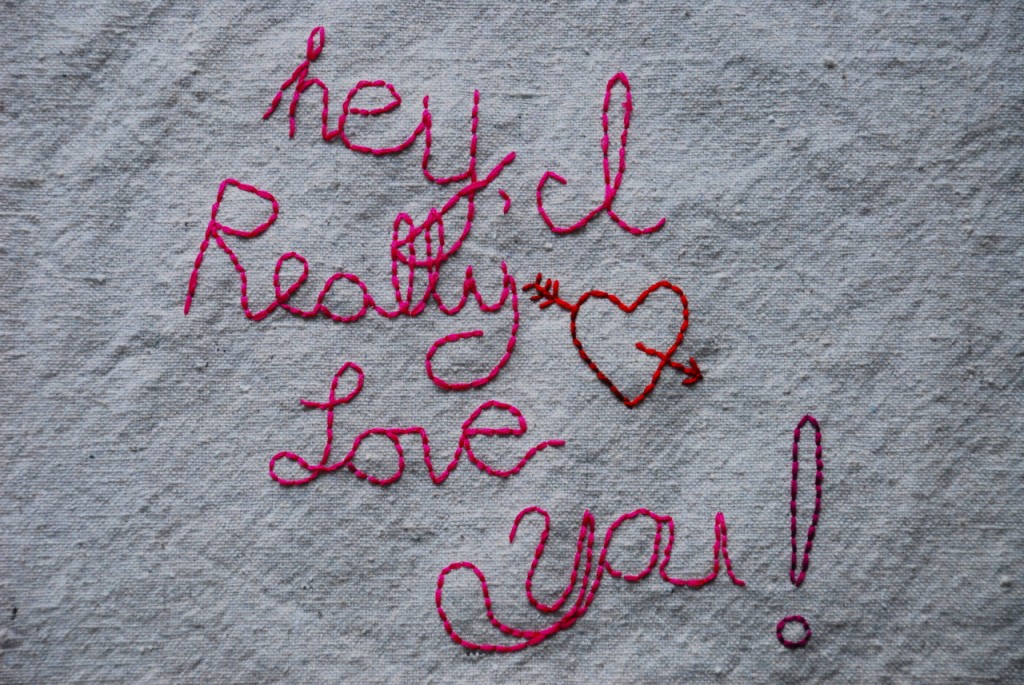 hey, I
Really
Love
you!